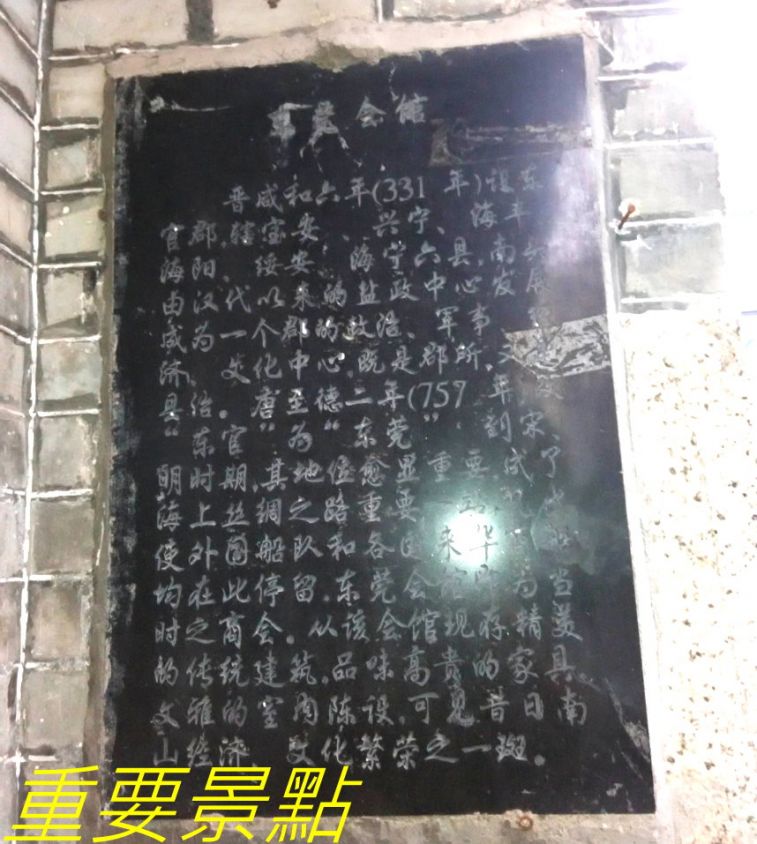 会馆
晋咸和六年(331年)设东
官郡,辖宝安、兴宁、海丰、
海阳、绥安、海宁六县,南
由汉代以来的盐政中心发展
成为一个郡的政治、军事
济、文化中心,既是郡所,又
县治。唐至德二年(757年
“东官”为“东莞”到宋、
明时期其地位愈显重要,成了
海上丝绸之路重要
使外国船队和各国来华
均在此停留。东莞会馆为当
时之商会。从该会馆现存精美
的传统建筑,品味高贵的家具
文雅的室内陈设,可见昔日南
山经济、文化繁荣之一斑。
重要景點